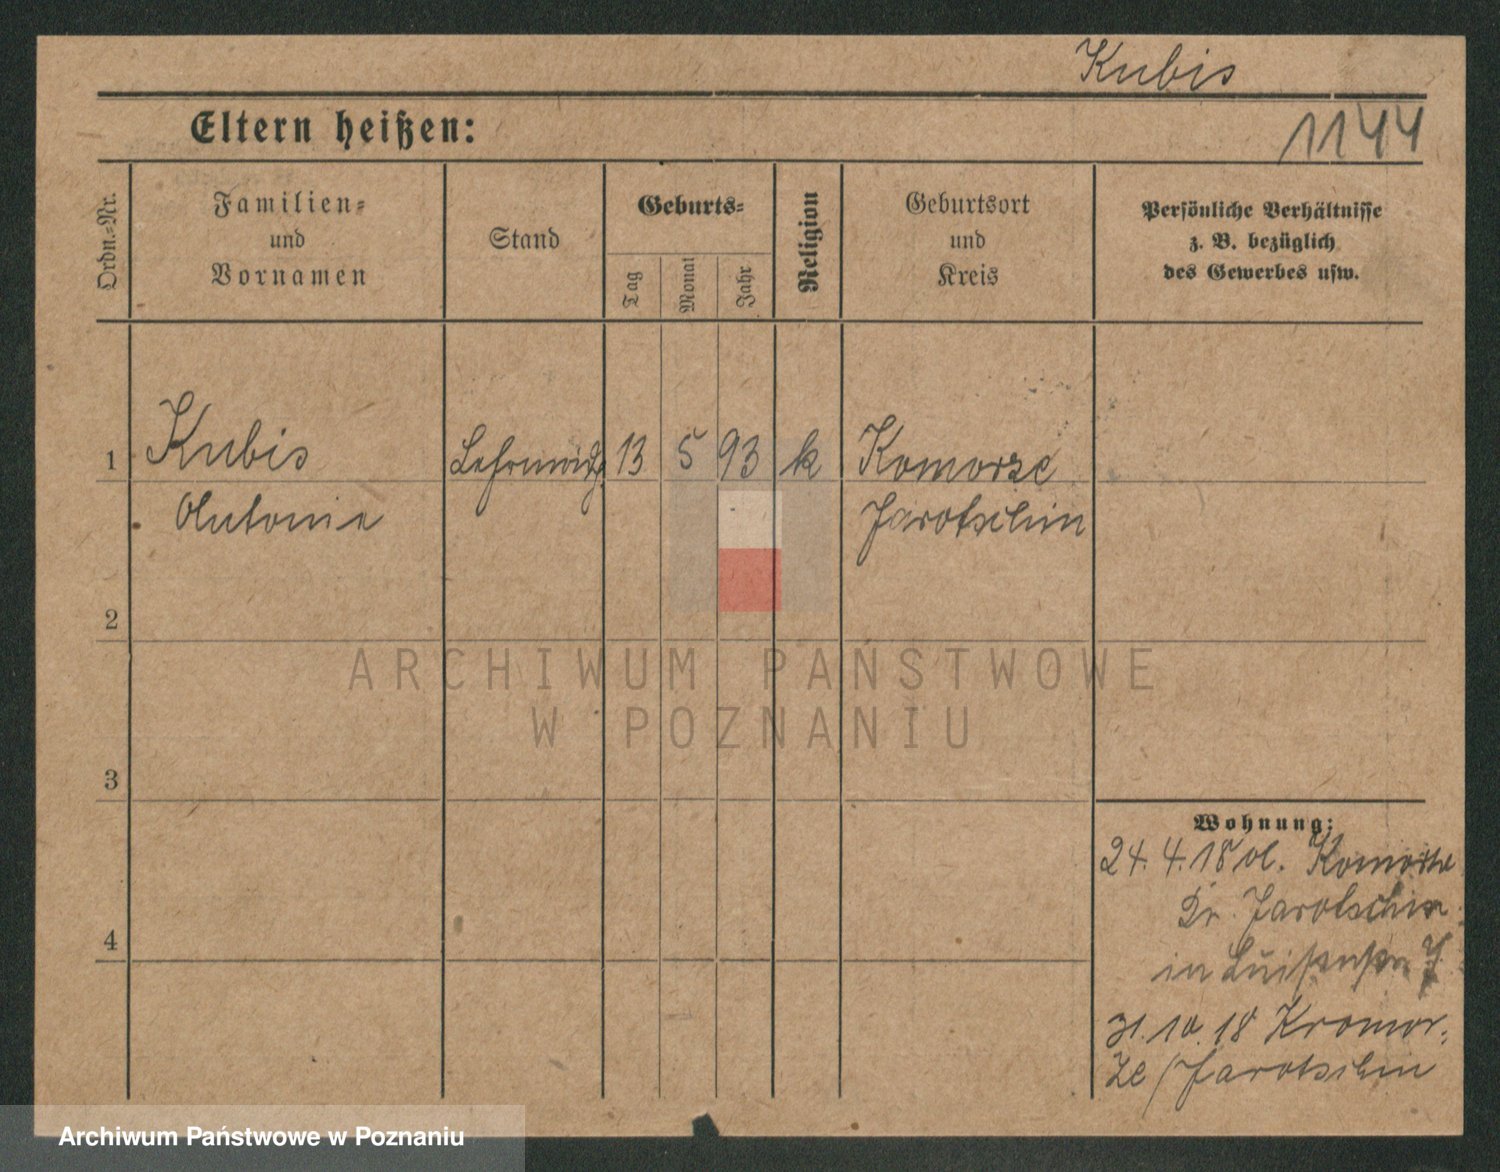 Kubis
1144
Eltern heißen:
Ordn.-Nr.
Familien-
und
Vornamen
Stand
Geburts-
Tag
Monat
Jahr
Religion
Geburtsort
und
Kreis
Persönliche Verhältnisse
z. B. bezüglich
des Gewerbes usw.
1
Kubis
13
5
93
k
Komorze
Antonie
Jarotschin
2
ARCHIWUM PAŃSTWOWE
W POZNANIU
3
Wohnung:
24. 4. 18 Komorze
Jarotschin
in
4
31. 10. 18 Kromor-
ze / Jarotschin
Archiwum Państwowe w Poznaniu